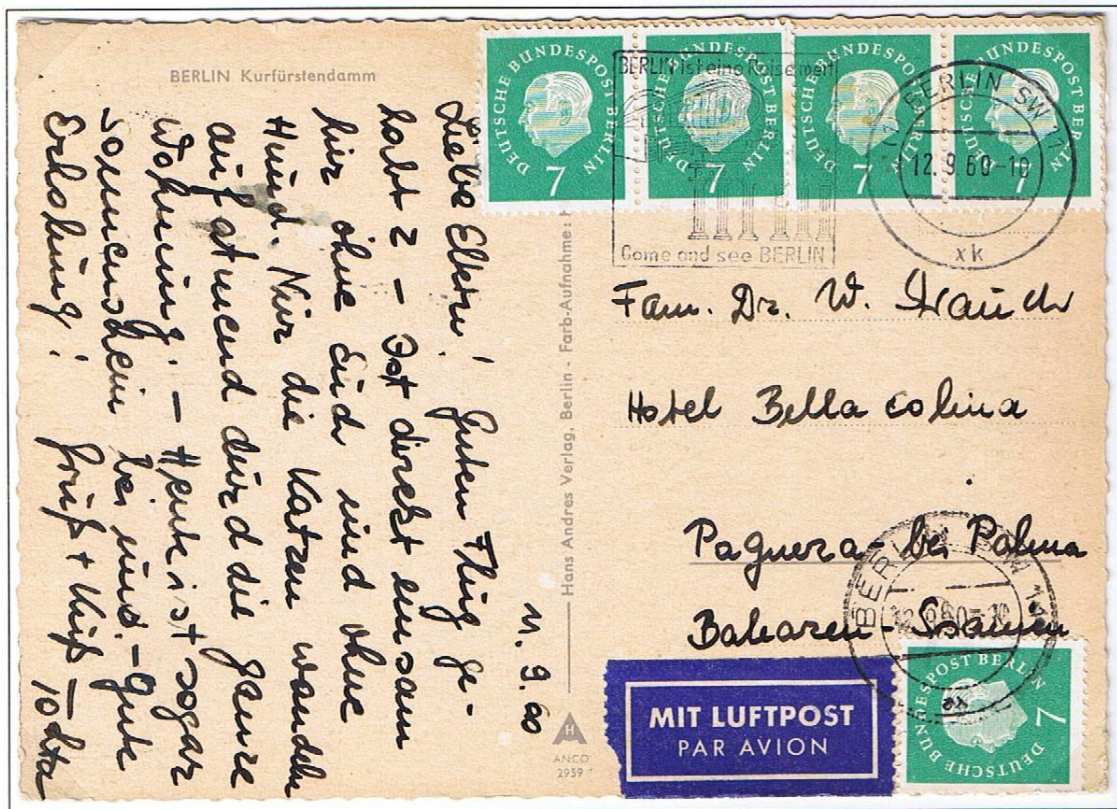 BERLIN Kurfürstendamm
11.9.60
Liebe Eltern! Guten Flug ge-
habt? – Ist direkt einsam
hier ohne Euch und ohne
Hund. Nur die Katzen wandeln
aufatmend durch die ganze
Wohnung. – Heute ist sogar
Sonnenschein bei uns. – Gute
Erholung! Gruß + Kuß –
Hans Andres Verlag, Berlin - Farb-Aufnahme:
ANCO
2959
DEUTSCHE BUNDESPOST BERLIN
7
DEUTSCHE BUNDESPOST BERLIN
7
DEUTSCHE BUNDESPOST BERLIN
7
DEUTSCHE BUNDESPOST BERLIN
7
BERLIN ist eine Reise wert
Come and see BERLIN
BERLIN SW 11
12.9.60-10
xk
Fam. Dr. W.
Hotel Bella colina
Paguera - bei Palma
Balearen - Spanien
BERLIN SW 11
12.9.60-10
MIT LUFTPOST
PAR AVION
DEUTSCHE BUNDESPOST BERLIN
7